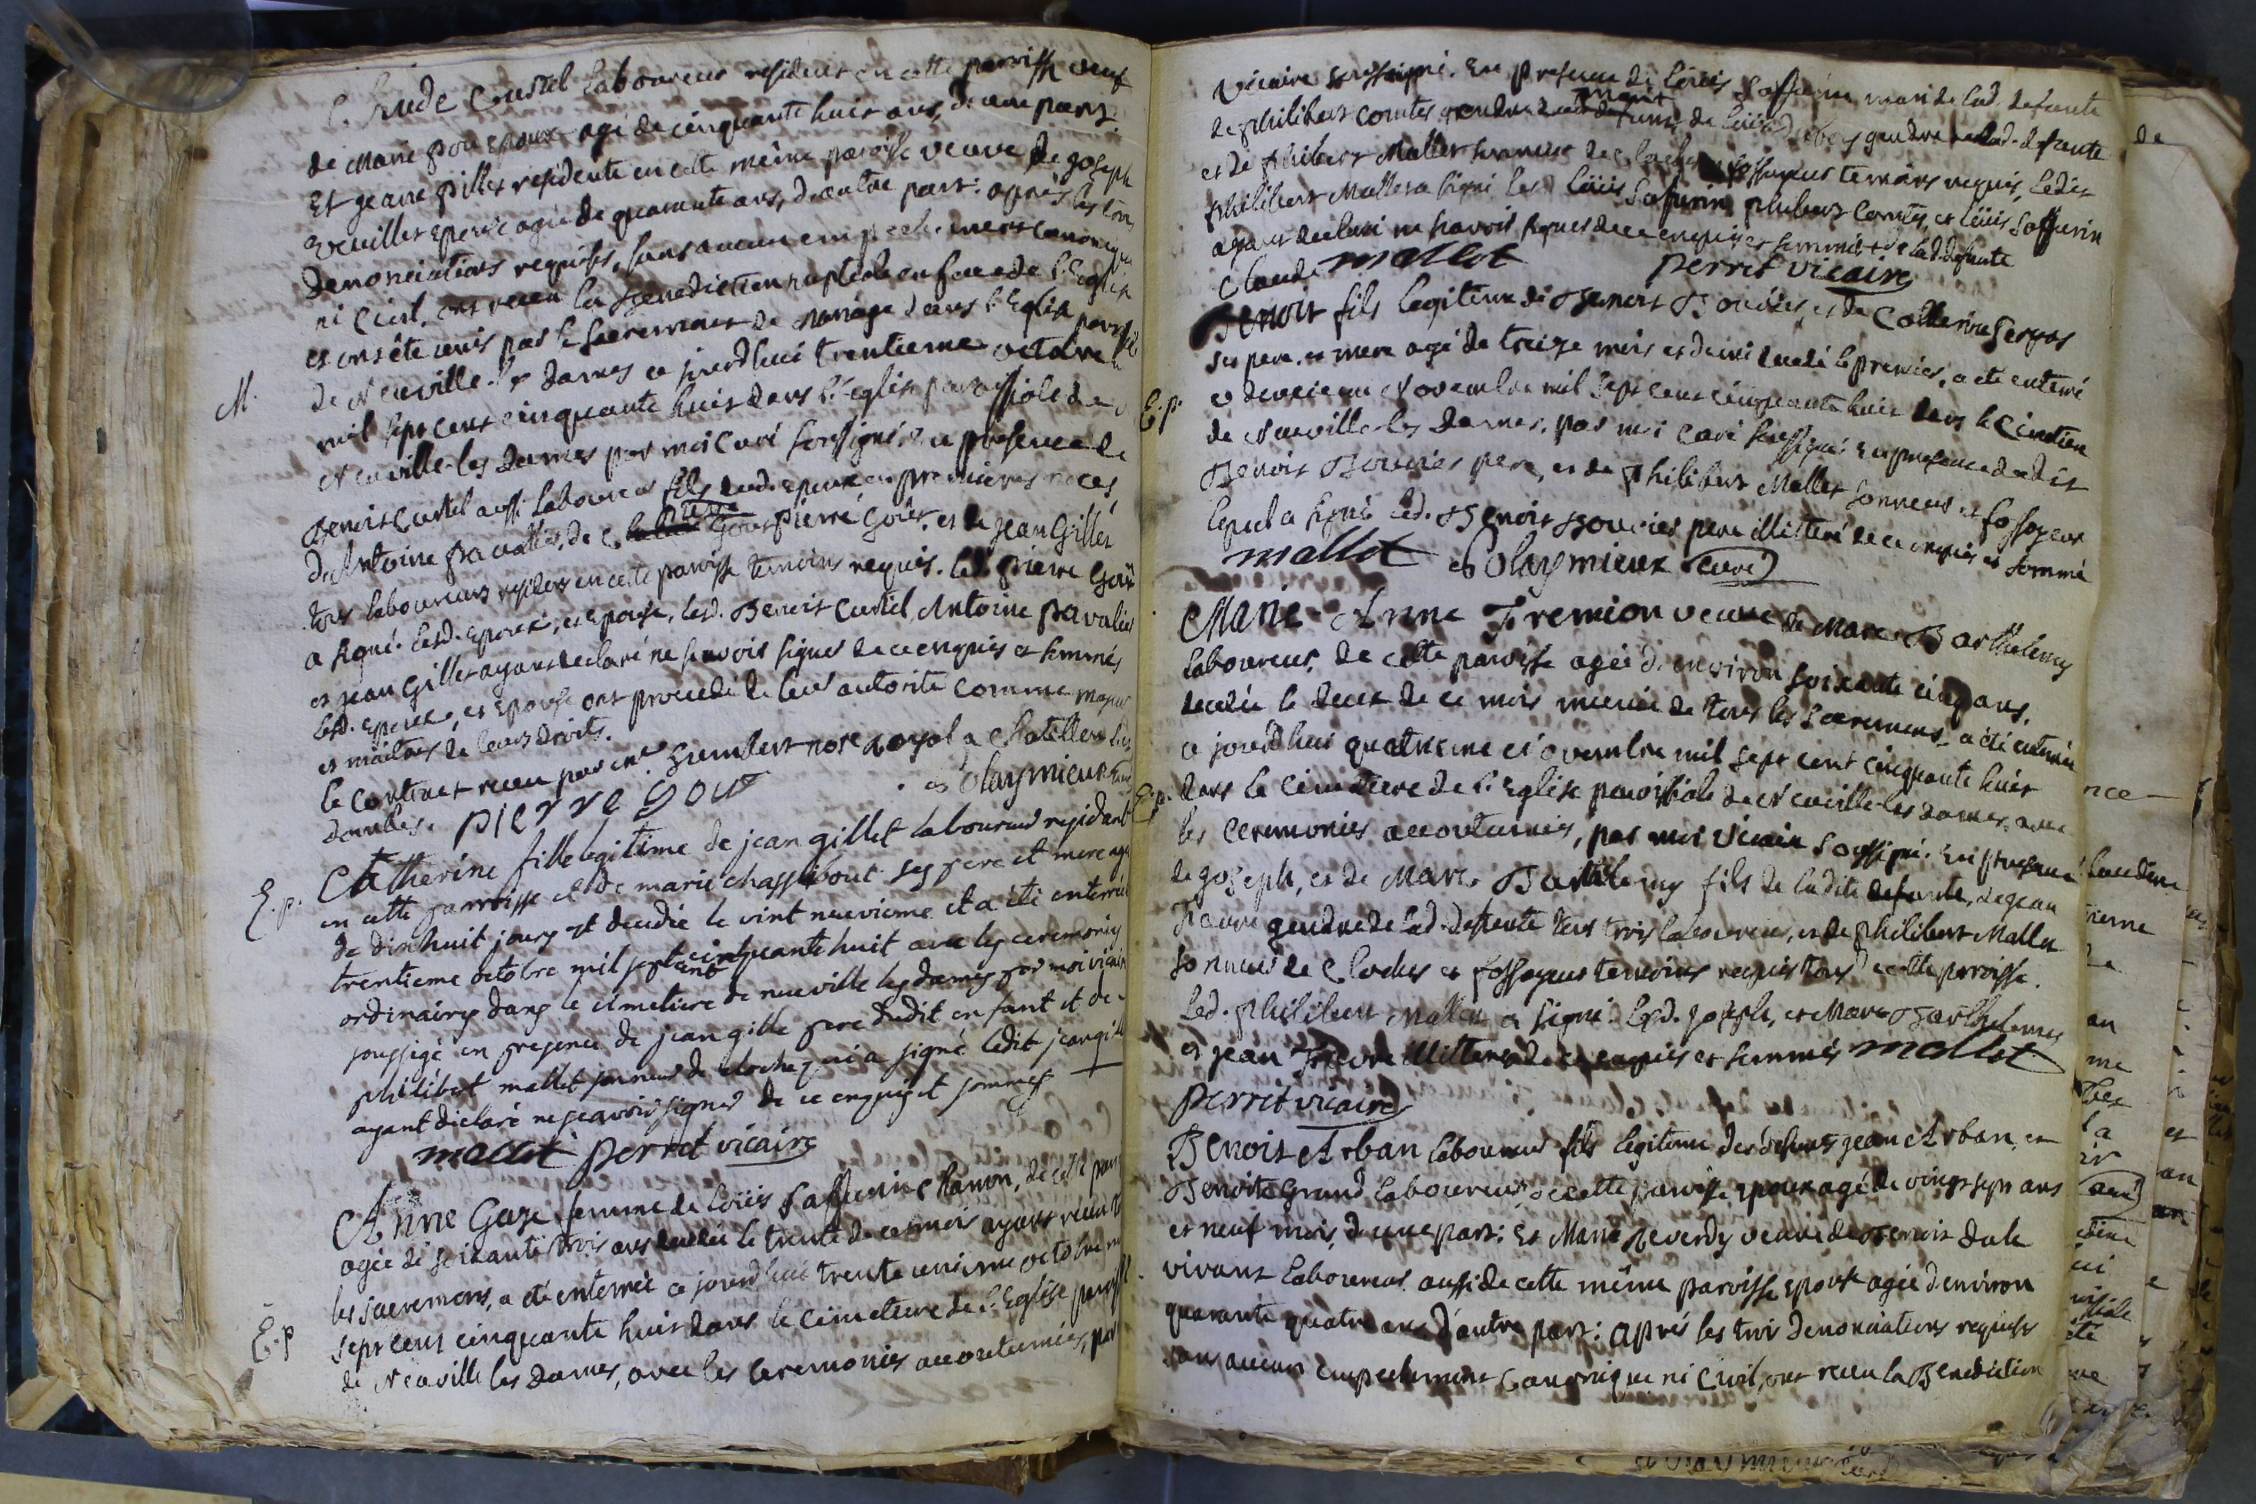 Claude Curtil laboureur resident en cette paroisse veuf
de Marie epoux agé de cinquante huit ans, d'une part
Et jeanne Gillet residente en cette même paroisse veuve de joseph
epouse agée de quarante ans, d'autre part: après les trois
denonciations requises, sans aucun empechement canonique
ni Civil, ont receu la Benediction nuptiale en face de l'Eglise
et ont été unis par le sacrement de Mariage dans l'Eglise paroissiale
M.
de Neuville les dames ce jourdhui trentieme octobre
mil sept cent cinquante huit dans l'Eglise paroissiale de
Neuville-les dames par moi Curé soussigné, en presence de
Benoit Curtil aussi laboureur fils dud. epoux en premieres noces
d'Antoine Bavallier, de Pierre Goür, et de jean Gillet
tous laboureurs resident en cette paroisse temoins requis. led. pierre Goür
a signé. lesd. epoux, et epouse, lesd. Benoit Curtil, Antoine Bavalier
et jean Gillet ayant declaré ne sçavoir signer de ce enquis et sommés
lesd. epoux, et epouse ont procedé de leur autorité comme majeurs
et maitres de leurs droits.
le contract receu par me humbert nore royal a Chatillon les
dombes. pierre gour Claymieux curé
E.p.
Catherine fille legitime de jean gillet laboureur residant
en cette parroisse et de marie chassibout ses pere et mere agée
de dixhuit jours est decedée le vint neuvieme et a été enterrée
trentieme octobre mil sept cent cinquante huit avec les ceremonies
ordinaires dans le cimetiere de neuville les dames par moi vicaire
soussigé en presence de jean gille pere dudit enfant et de
philibert mallet sonneur de cloches qui a signé ledit jean gillet
ayant diclaré ne sçavoir signer de ce enquis et sommés
mallet perret vicaire
Anne Gaze femme de Loüis Saffurin Chanon, de cette paroisse
agée de soixante trois ans decedée le trente de ce mois ayant receu tous
les sacremens, a été enterrée ce jourdhui trente unieme octobre mil
E.p
sept cent cinquante huit dans le cimetiere de l'Eglise paroissiale
de Neuville les dames, avec les ceremonies accoutumées, par
vicaire soussigné. En presence de Loüis Saffurin mari de lad. defunte
de philibert comtet gendre de lad. defunte
et de philibert Mallet sonneur de cloches et fossoyeur temoins requis, ledit
philibert Mallet a signé lesd. Loüis Safurin philibert Comtet, et Loüis Saffurin
ayant declaré ne sçavoir signer de ce enquis et sommés
Claude mallet perret vicaire
Benoit fils legitime de Benoit Bouvier, et de Catherine Gerbas
ses pere et mere agé de treize mois et demi decedé le premier, a eté enterré
E.p.
ce deuxieme Novembre mil sept cent cinquante huit dans le Cimetiere
de Neuville les dames, par moi curé soussigné. En presence dudit
Benoit Bouvier pere, et de philibert Mallet sonneur et fossoyeur
lequel a signé led. Benoit Bouvier pere illitteré de ce enquis et sommé
mallet Claymieux curé
Marie-Anne Fremion veuve de Marc Barthelemy
laboureur, de cette paroisse agée d'environ soixante cinq ans,
decedée le deux de ce mois munie de tous les Sacremens, a été enterrée
ce jourdhui quatrieme Novembre mil sept cent cinquante huit
E.p.
dans le cimetiere de l'Eglise paroissiale de Neuville-les dames, avec
les ceremonies accoutumées, par moi vicaire soussigné. En presence
de joseph, et de Marc Barthelemy fils de ladite defunte, de jean
Favre gendre de lad. defunte tous trois laboureurs, et de philibert Mallet
sonneur de cloches et fossoyeur temoins requis tous de cette paroisse.
led. philibert Mallet a signé. lesd. joseph, et Marc Barthelemy
et jean Favre illitterés de ce enquis et sommés mallet
perret vicaire
Benoit Arban laboureur fils legitime des defunts jean Arban, et
Benoite Grand laboureur de cette paroisse epoux agé de vingt sept ans
et neuf mois, d'une part; Et Marie Reverdy veuve de Benoit Dale
vivant laboureur aussi de cette même paroisse epouse agée d'environ
quarante quatre ans d'autre part: après les trois denonciations requises
sans aucun empechement Canonique ni Civil, ont receu la Benediction